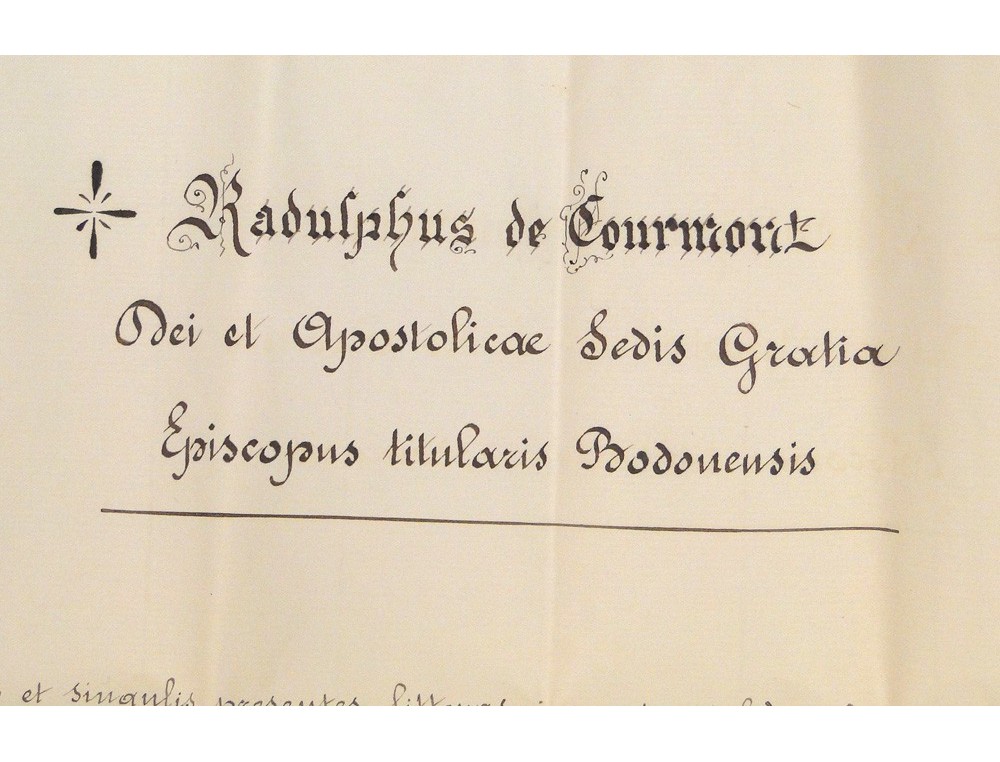 Radulphus de Courmont
Dei et Apostolicae Sedis Gratia
Episcopus titularis Bodonensis
et singulis presentes